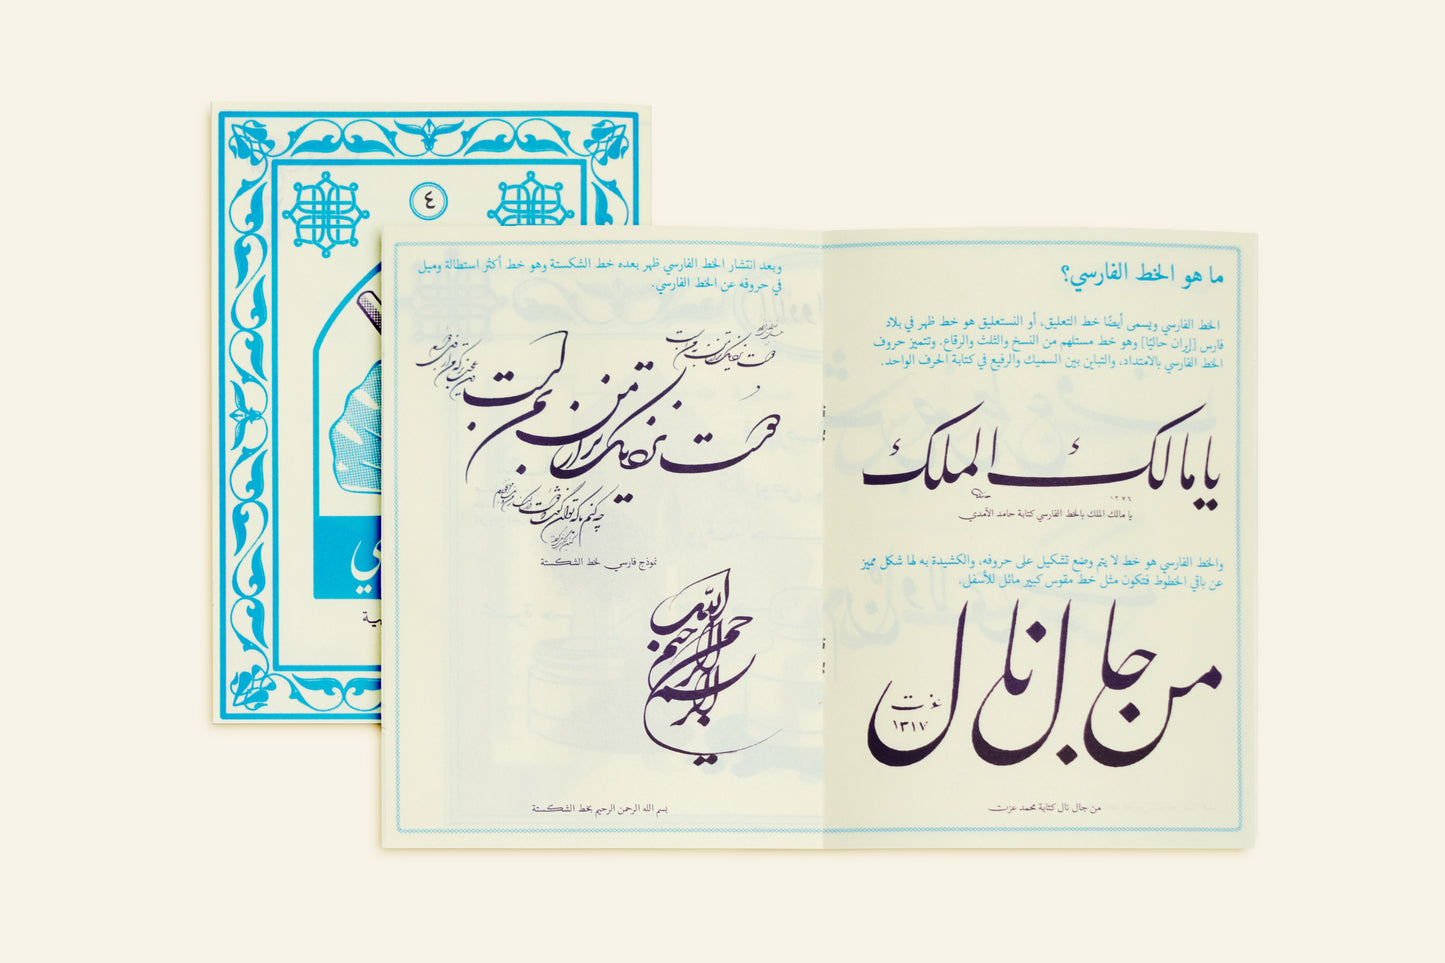 ٤
ما هو الخط الفارسي؟
الخط الفارسي ويسمى أيضًا خط التعليق، أو النستعليق هو خط ظهر في بلاد
فارس [إيران حاليًا] وهو خط مستلهم من النسخ والثلث والرقاع. وتتميز حروف
الخط الفارسي بالامتداد، والتباين بين السميك والرفيع في كتابة الحرف الواحد.
يا مالك الملك
حامد ١٣٧٦
يا مالك الملك بالخط الفارسي كتابة حامد الأمدي
والخط الفارسي هو خط لا يتم وضع تشكيل على حروفه، والكشيدة به لها شكل مميز
عن باقي الخطوط فتكون مثل خط مقوس كبير مائل للأسفل.
من جا نال
عزت
١٣١٧
من جال نال كتابة محمد عزت
وبعد انتشار الخط الفارسي ظهر بعده خط الشكستة وهو خط أكثر استطالة وميل
في حروفه عن الخط الفارسي.
دوست نزدیکتر از من بمن است
چه کنم با که توان گفت که دوست
نموذج فارسي لخط الشكستة
بسم الله الرحمن الرحيم
بسم الله الرحمن الرحيم بخط الشكستة